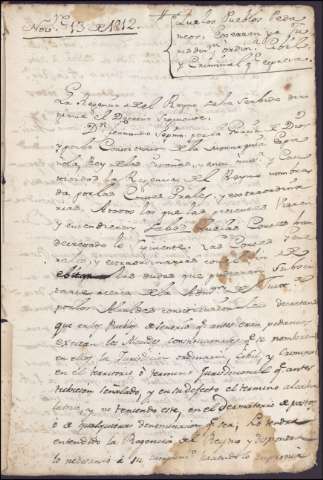 Nov.re 13 de 1812.
los Pueblos Peda
neos. Exercen la Ju
ordin.a Civil
y Criminal q.e espresa.
La Regencia del Reyno se ha servido diri
girme el Decreto siguiente.
D.n Fernando Septimo por la Gracia de Dios
y por la Constitucion de la Monarquia Espa
ñola, Rey de las Españas, y en su ausencia y Cau
tividad la Regencia del Reyno nombra
da por las Cortes Grales. y extraordina
rias. A todos los que las presentes vieren
y entendieren Sabed que las Cortes han
decretado lo siguiente. Las Cortes Gene
rales y extraordinarias
las dudas que Suscit
tarse acerca de la Adm.on de Just.a
por los Alcaldes constitucionales decretan
que en los Pueblos de Señorio q.e antes eran pedaneos,
exerzan los Alcaldes constitucionales q.e se nombraren
en ellos la Jurisdicion ordinaria, Civil, y Criminal
en el territorio ó termino Jurisdiccional q.e antes
señalado, y en su defecto el termino alcaba
latorio, y no teniendo este, en el dezmatorio de pastos
ó de qualquiera denominacion q.e sea. Lo tendra
entendido la Regencia del Reyno y dispondra
lo necesario á su cumplim.to haciendolo imprimir